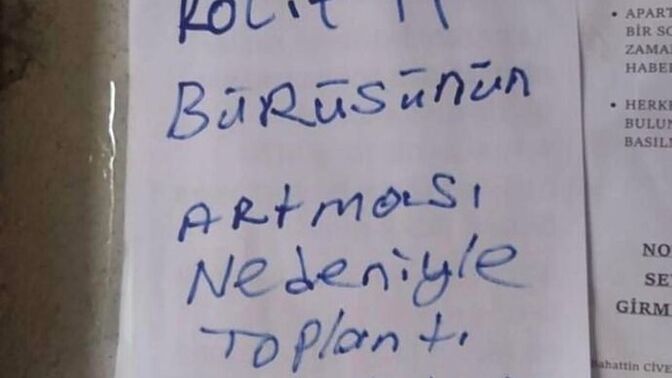 KOLİT 19
BÜRÜSÜNÜN
ARTMASI
Nedeniyle
TOPlantı
• APART
BİR SO
ZAMAN
HABER
• HERKE
BULUN
BASILM
NO
SE
GİRM
Bahattin CİVE